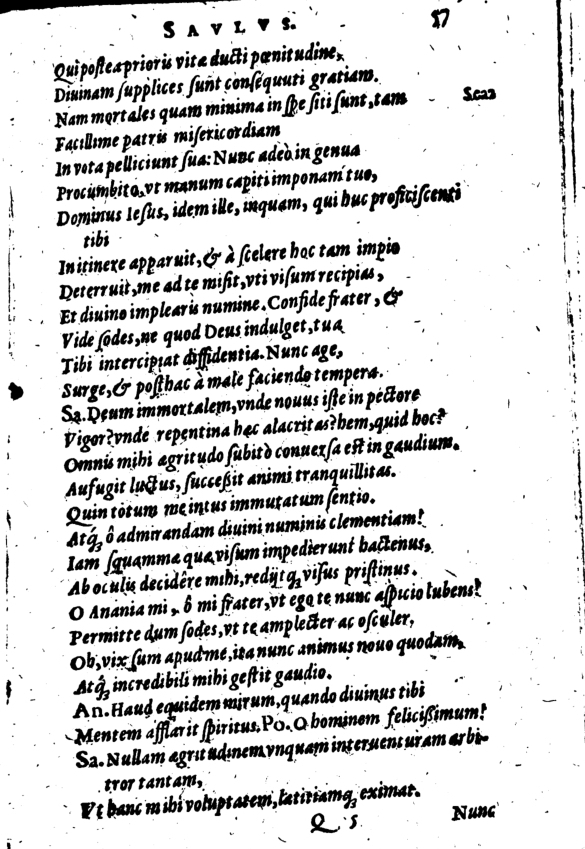 SAVLVS. 57
Qui postea prioris vitæ ducti pœnitudine,
Diuinam supplices sunt consequuti gratiam.
Nam mortales quam minima in spe siti sunt, tam
Facillime patris misericordiam
In vota pelliciunt sua: Nunc adeò in genua
Procumbito, vt manum capiti imponam tuo,
Dominus Iesus, idem ille, inquam, qui huc proficiscenti
tibi
In itinere apparuit, & à scelere hoc tam impio
Deterruit, me ad te misit, vti visum recipias,
Et diuino implearis numine. Confide frater, &
Vide sodes, ne quod Deus indulget, tua
Tibi intercipiat diffidentia. Nunc age,
Surge, & posthac à male faciendo tempera.
Sa. Deum immortalem, vnde nouus iste in pectore
Vigor? vnde repentina hæc alacritas? hem, quid hoc?
Omnis mihi ægritudo subitò conuersa est in gaudium.
Aufugit luctus, successit animi tranquillitas.
Quin totum me intus immutatum sentio.
Atqꝫ ô admirandam diuini numinis clementiam!
Iam squammæ quæ visum impedierunt hactenus,
Ab oculis decidêre mihi, redijtqꝫ visus pristinus.
O Anania mi, ô mi frater, vt ego te nunc aspicio lubens!
Permitte dum sodes, vt te amplecter ac osculer,
Oh, vix sum apud me, ita nunc animus nouo quodam,
Atqꝫ incredibili mihi gestit gaudio.
An. Haud equidem mirum, quando diuinus tibi
Mentem afflarit spiritus. Po. O hominem felicissimum!
Sa. Nullam ægritudinem vnquam interuenturam arbi-
tror tantam,
Vt hanc mihi voluptatem, lætitiamqꝫ eximat.
Q 5 Nunc